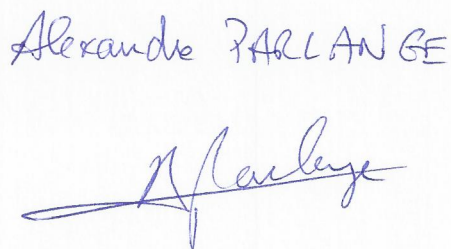 Alexandre PARLANGE